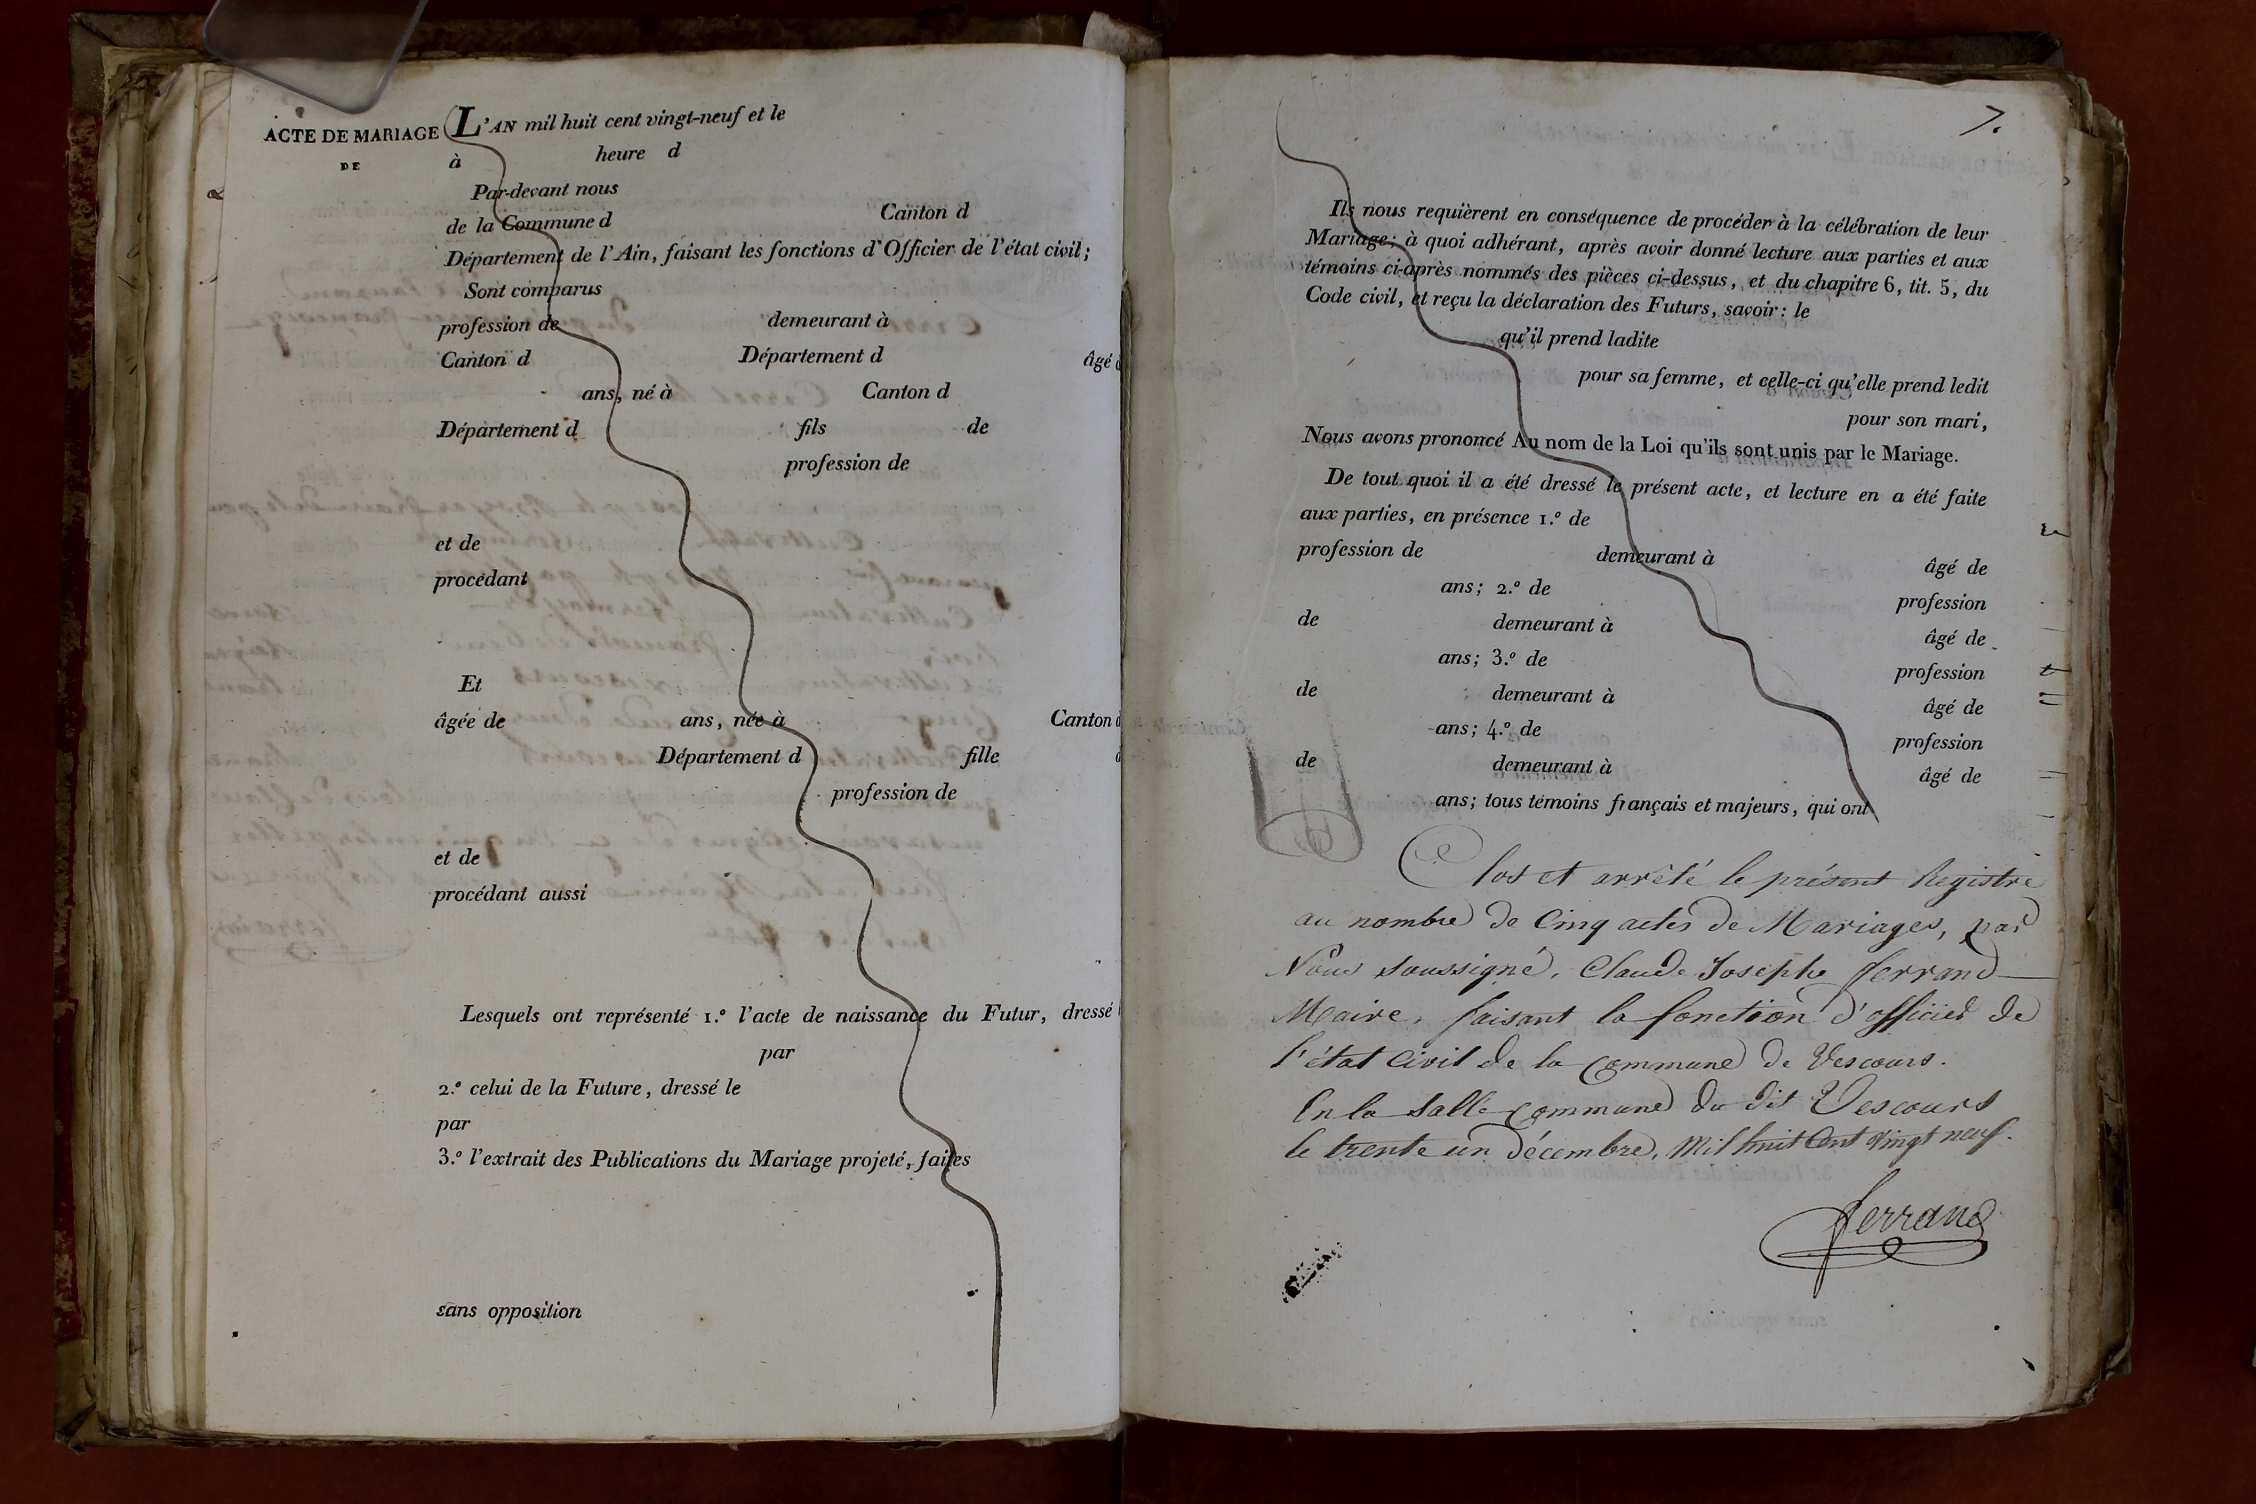 ACTE DE MARIAGE
DE
L'AN mil huit cent vingt-neuf et le
à heure d
Par-devant nous
de la Commune d Canton d
Département de l'Ain, faisant les fonctions d'Officier de l'état civil;
Sont comparus
profession de demeurant à
Canton d Département d âgé
ans, né à Canton d
Département d fils de
profession de
et de
procédant
Et
âgée de ans, née à Canton
Département d fille
profession de
et de
procédant aussi
Lesquels ont représenté 1.º l'acte de naissance du Futur, dressé
par
2.º celui de la Future, dressé le
par
3.º l'extrait des Publications du Mariage projeté, faites
sans opposition
7.
Ils nous requièrent en conséquence de procéder à la célébration de leur
Mariage; à quoi adhérant, après avoir donné lecture aux parties et aux
témoins ci-après nommés des pièces ci-dessus, et du chapitre 6, tit. 5, du
Code civil, et reçu la déclaration des Futurs, savoir: le
qu'il prend ladite
pour sa femme, et celle-ci qu'elle prend ledit
pour son mari,
Nous avons prononcé Au nom de la Loi qu'ils sont unis par le Mariage.
De tout quoi il a été dressé le présent acte, et lecture en a été faite
aux parties, en présence 1.º de
profession de demeurant à âgé de
ans; 2.º de profession
de demeurant à âgé de
ans; 3.º de profession
de demeurant à âgé de
ans; 4.º de profession
de demeurant à âgé de
ans; tous témoins français et majeurs, qui ont
Clos et arrêté le présent Registre
au nombre de Cinq actes de Mariages, par
Nous soussigné, Claude Josephe ferrand
Maire, faisant la fonction d'officier de
l'état Civil de la Commune de Vescours.
En la Salle Commune du dit Vescours
le trente un décembre, Mil huit Cent vingt neuf.
ferrand